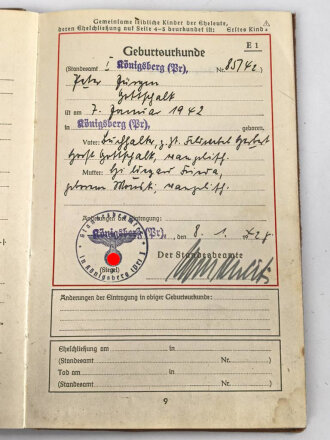 Gemeinsame leibliche Kinder der Eheleute,
deren Eheschließung auf Seite 4–5 beurkundet ist: Erstes Kind
Geburtsurkunde E 1
(Standesamt I Königsberg (Pr), Nr. 85/42)
Peter Jürgen
Gottschalk
ist am 7. Januar 1942
in Königsberg (Pr), geboren.
Vater: Buchhalter, z. Zt. Feldwebel Herbert
Horst Gottschalk, evangelisch.
Mutter: Frieda,
geborene evangelisch.
Änderungen der Eintragung:
Königsberg (Pr), den 8. 1. 1942
Der Standesbeamte
(Siegel)
in Königsberg (Pr) I
Änderungen der Eintragung in obiger Geburtsurkunde:
Eheschließung am in
(Standesamt Nr. )
Tod am in
(Standesamt Nr. )
9